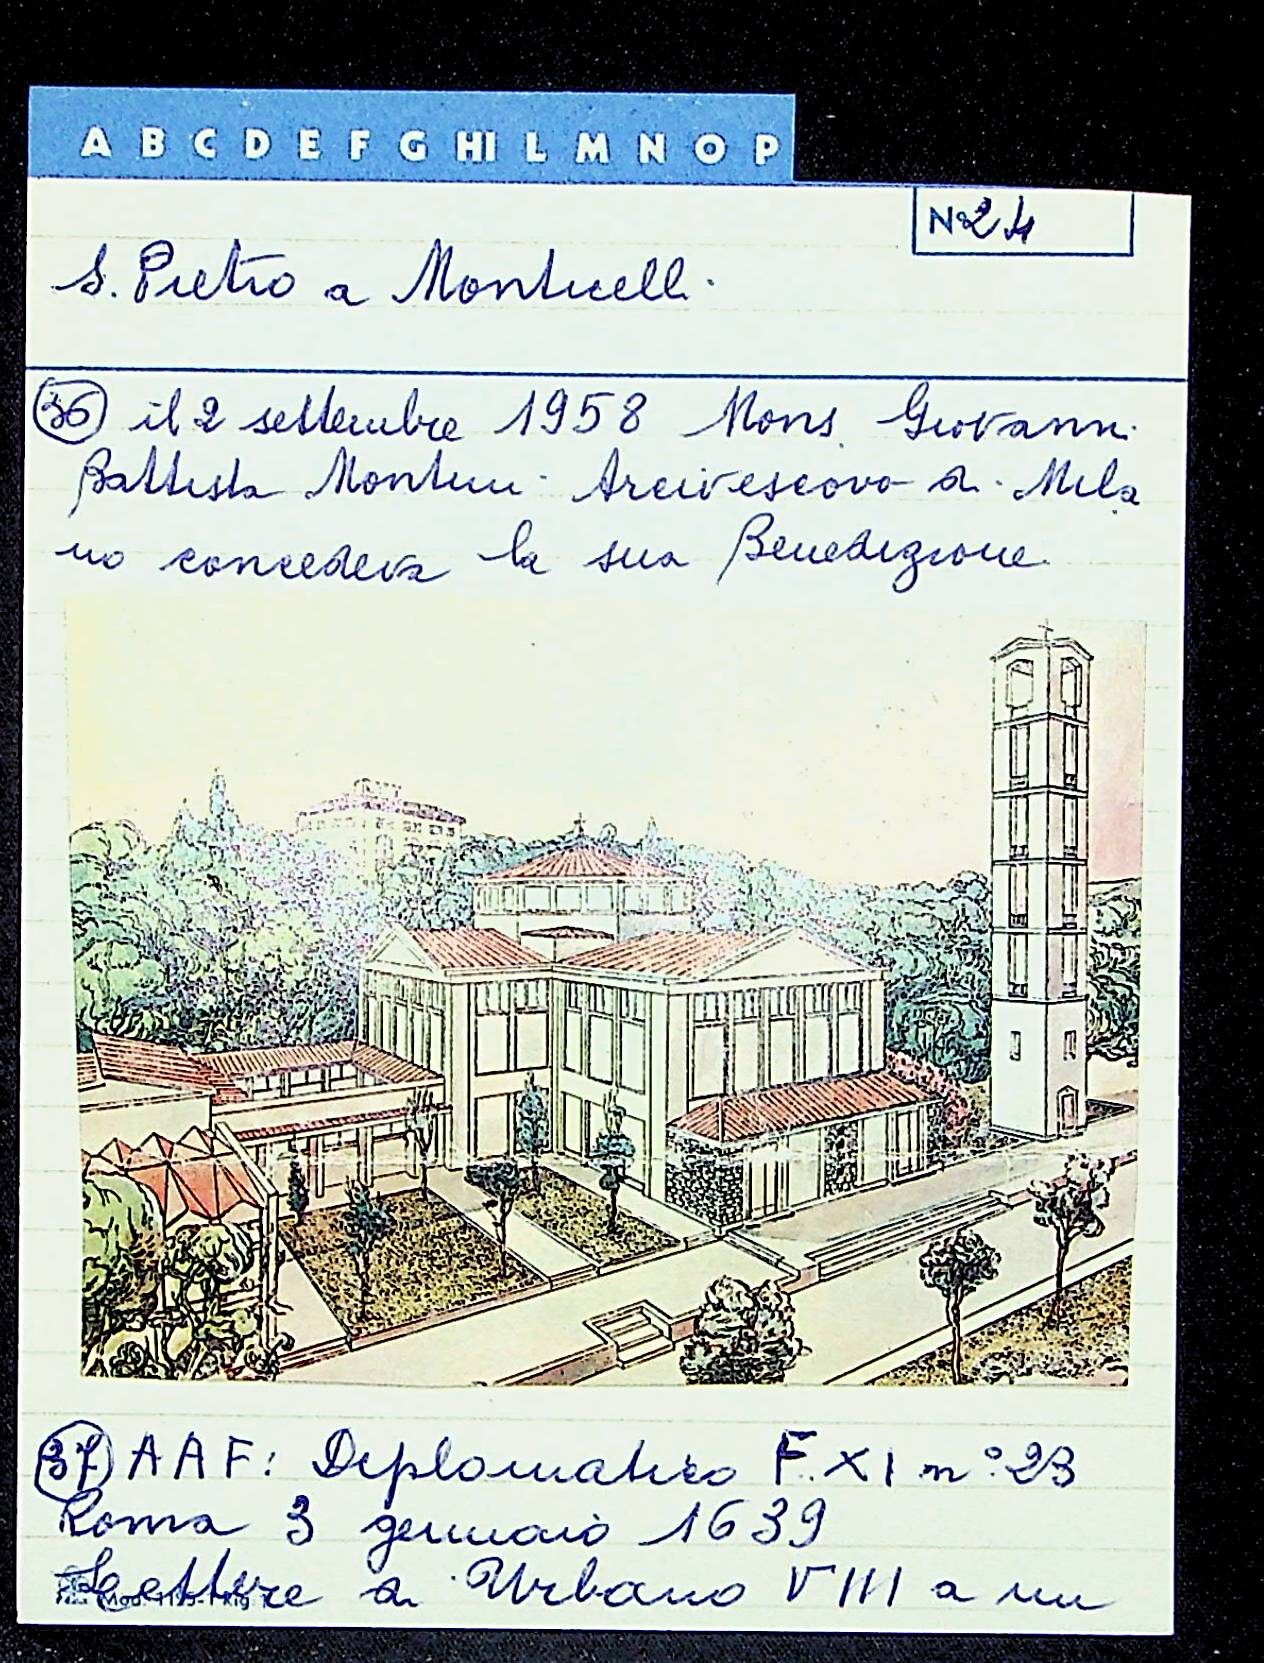 A B C D E F G HI L M N O P
N° 24
S. Pietro a Monticelli.
36 il 2 settembre 1958 Mons. Giovanni
Battista Montini Arcivescovo di Mila
no concedeva la sua Benedizione.
37 AAF: Diplomatico F. XI n° 23
Roma 3 gennaio 1639
Lettere di Urbano VIII a un